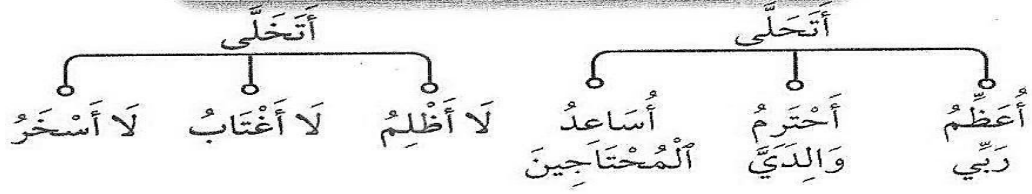 أَتَحَلَّى
أُعَظِّمُ رَبِّي
أَحْتَرِمُ وَالِدَيَّ
أُسَاعِدُ ٱلْمُحْتَاجِينَ
أَتَخَلَّى
لَا أَظْلِمُ
لَا أَغْتَابُ
لَا أَسْخَرُ